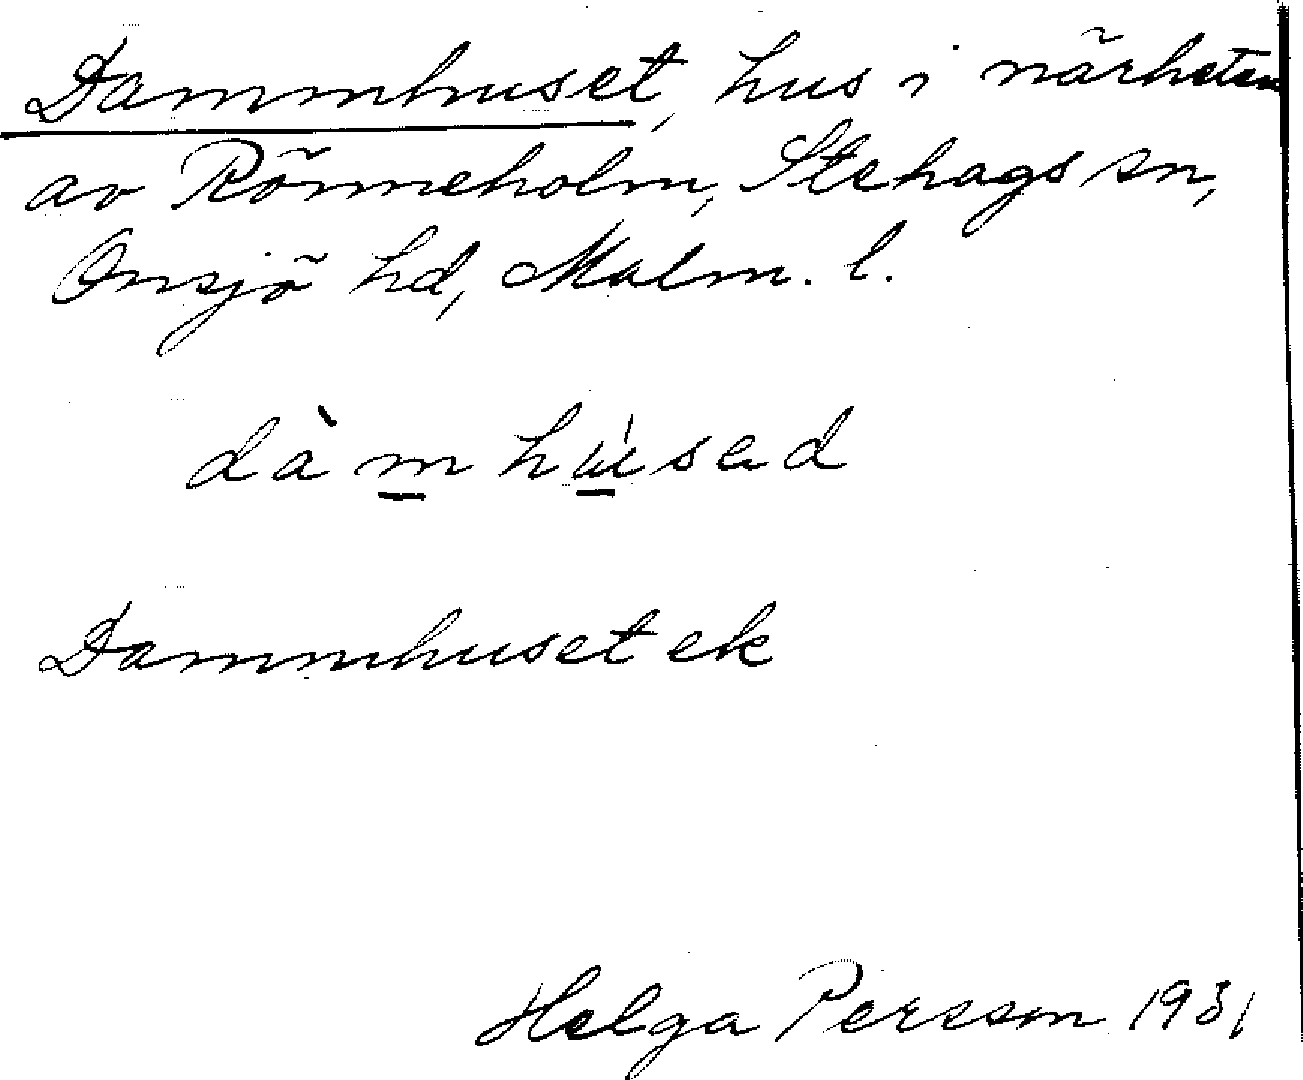 Dammhuset, hus i närheten
av Rönneholm, Stehags sn,
Onsjö hd, Malm. l.
dàm húsad
Dammhuset ek
Helga Persson 1931